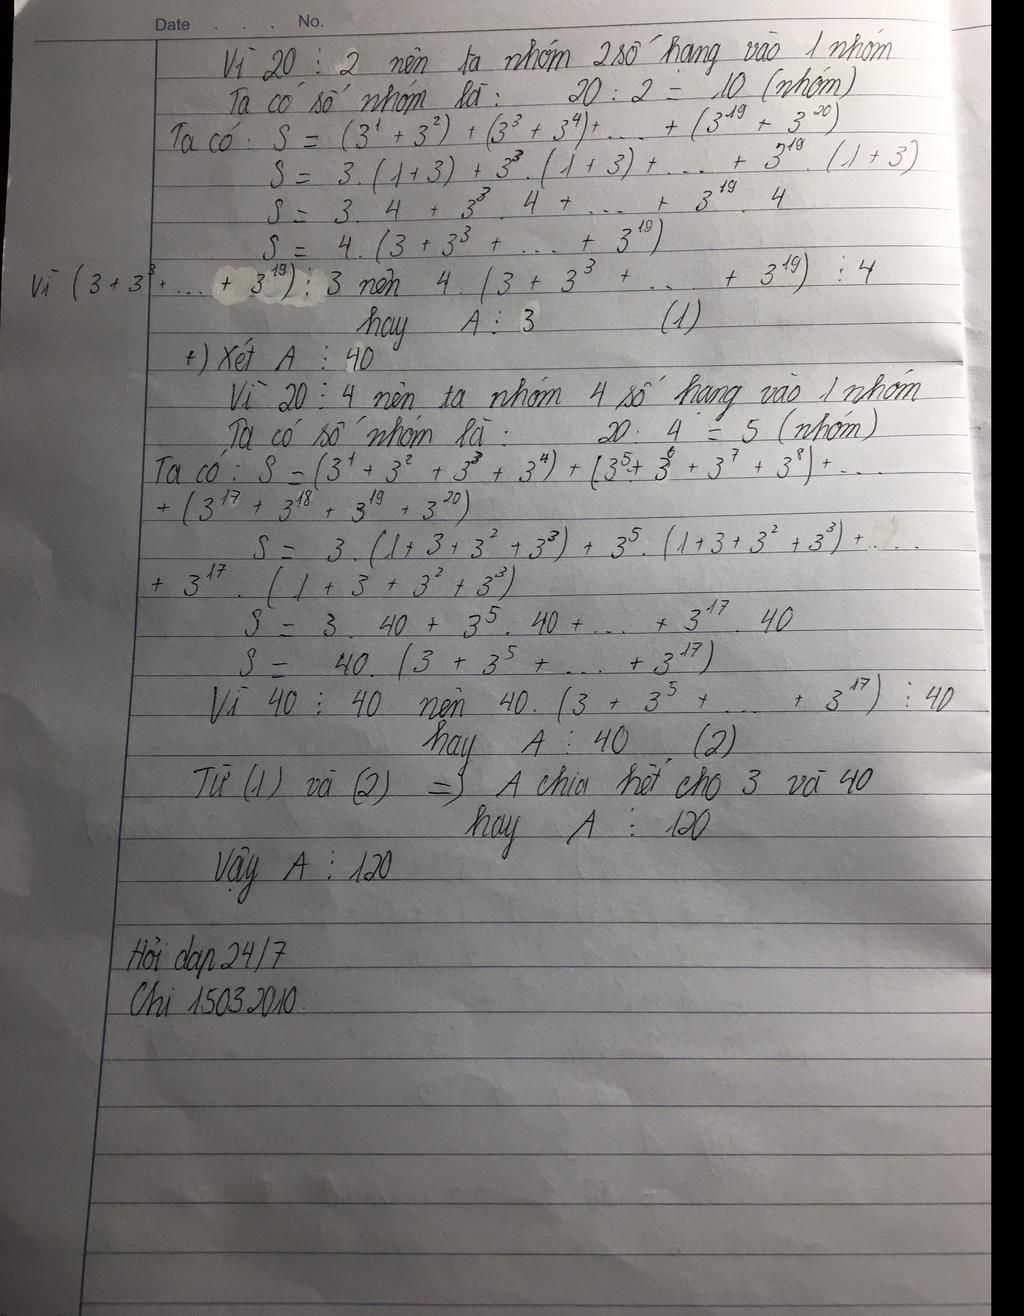 Date . . . No.
Vì 20 ⋮ 2 nên ta nhóm 2 số hạng vào 1 nhóm
Ta có số nhóm là : 20 : 2 = 10 (nhóm)
Ta có : S = (3¹ + 3²) + (3³ + 3⁴) + ... + (3¹⁹ + 3²⁰)
S = 3 . (1+3) + 3³ . (1+3) + ... + 3¹⁹ . (1+3)
S = 3 . 4 + 3³ . 4 + ... + 3¹⁹ . 4
S = 4 . (3 + 3³ + ... + 3¹⁹)
Vì (3 + 3³ + ... + 3¹⁹) ⋮ 3 nên 4 . (3 + 3³ + ... + 3¹⁹) ⋮ 4
hay A ⋮ 3 (1)
+) Xét A ⋮ 40
Vì 20 ⋮ 4 nên ta nhóm 4 số hạng vào 1 nhóm
Ta có số nhóm là : 20 : 4 = 5 (nhóm)
Ta có : S = (3¹ + 3² + 3³ + 3⁴) + (3⁵ + 3⁶ + 3⁷ + 3⁸) + ...
+ (3¹⁷ + 3¹⁸ + 3¹⁹ + 3²⁰)
S = 3 . (1 + 3 + 3² + 3³) + 3⁵ . (1 + 3 + 3² + 3³) + ...
+ 3¹⁷ . (1 + 3 + 3² + 3³)
S = 3 . 40 + 3⁵ . 40 + ... + 3¹⁷ . 40
S = 40 . (3 + 3⁵ + ... + 3¹⁷)
Vì 40 ⋮ 40 nên 40 . (3 + 3⁵ + ... + 3¹⁷) ⋮ 40
hay A ⋮ 40 (2)
Từ (1) và (2) => A chia hết cho 3 và 40
hay A ⋮ 120
Vậy A ⋮ 120
Hỏi dap 24/7
Chi 15032010.